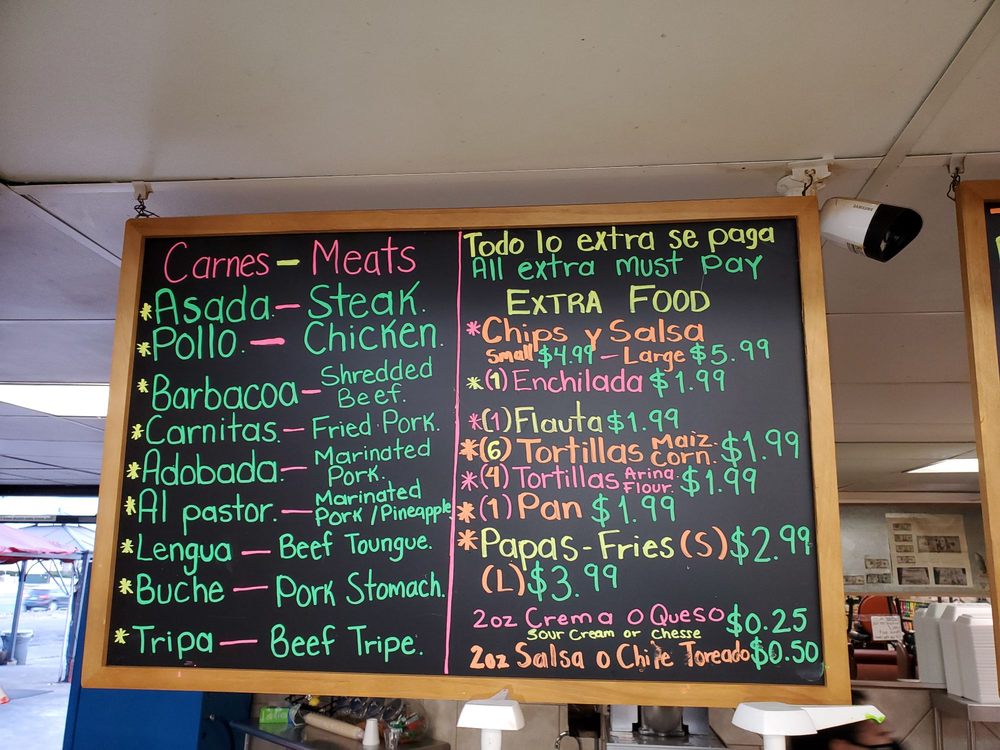 Carnes - Meats
* Asada - Steak.
* Pollo. - Chicken.
* Barbacoa - Shredded
Beef.
* Carnitas. - Fried Pork.
* Adobada. - Marinated
Pork.
* Al pastor. - Marinated
Pork/Pineapple
* Lengua - Beef Toungue.
* Buche - Pork Stomach.
* Tripa - Beef Tripe.
Todo lo extra se paga
All extra must pay
EXTRA FOOD
* Chips y Salsa
Small $4.99 - Large $5.99
* (1) Enchilada $1.99
* (1) Flauta $1.99
* (6) Tortillas Maiz. Corn. $1.99
* (4) Tortillas Arina Flour. $1.99
* (1) Pan $1.99
* Papas - Fries (S) $2.99
(L) $3.99
2oz Crema o Queso $0.25
Sour Cream or chesse
2oz Salsa o Chile Toreado $0.50
SAMSUNG